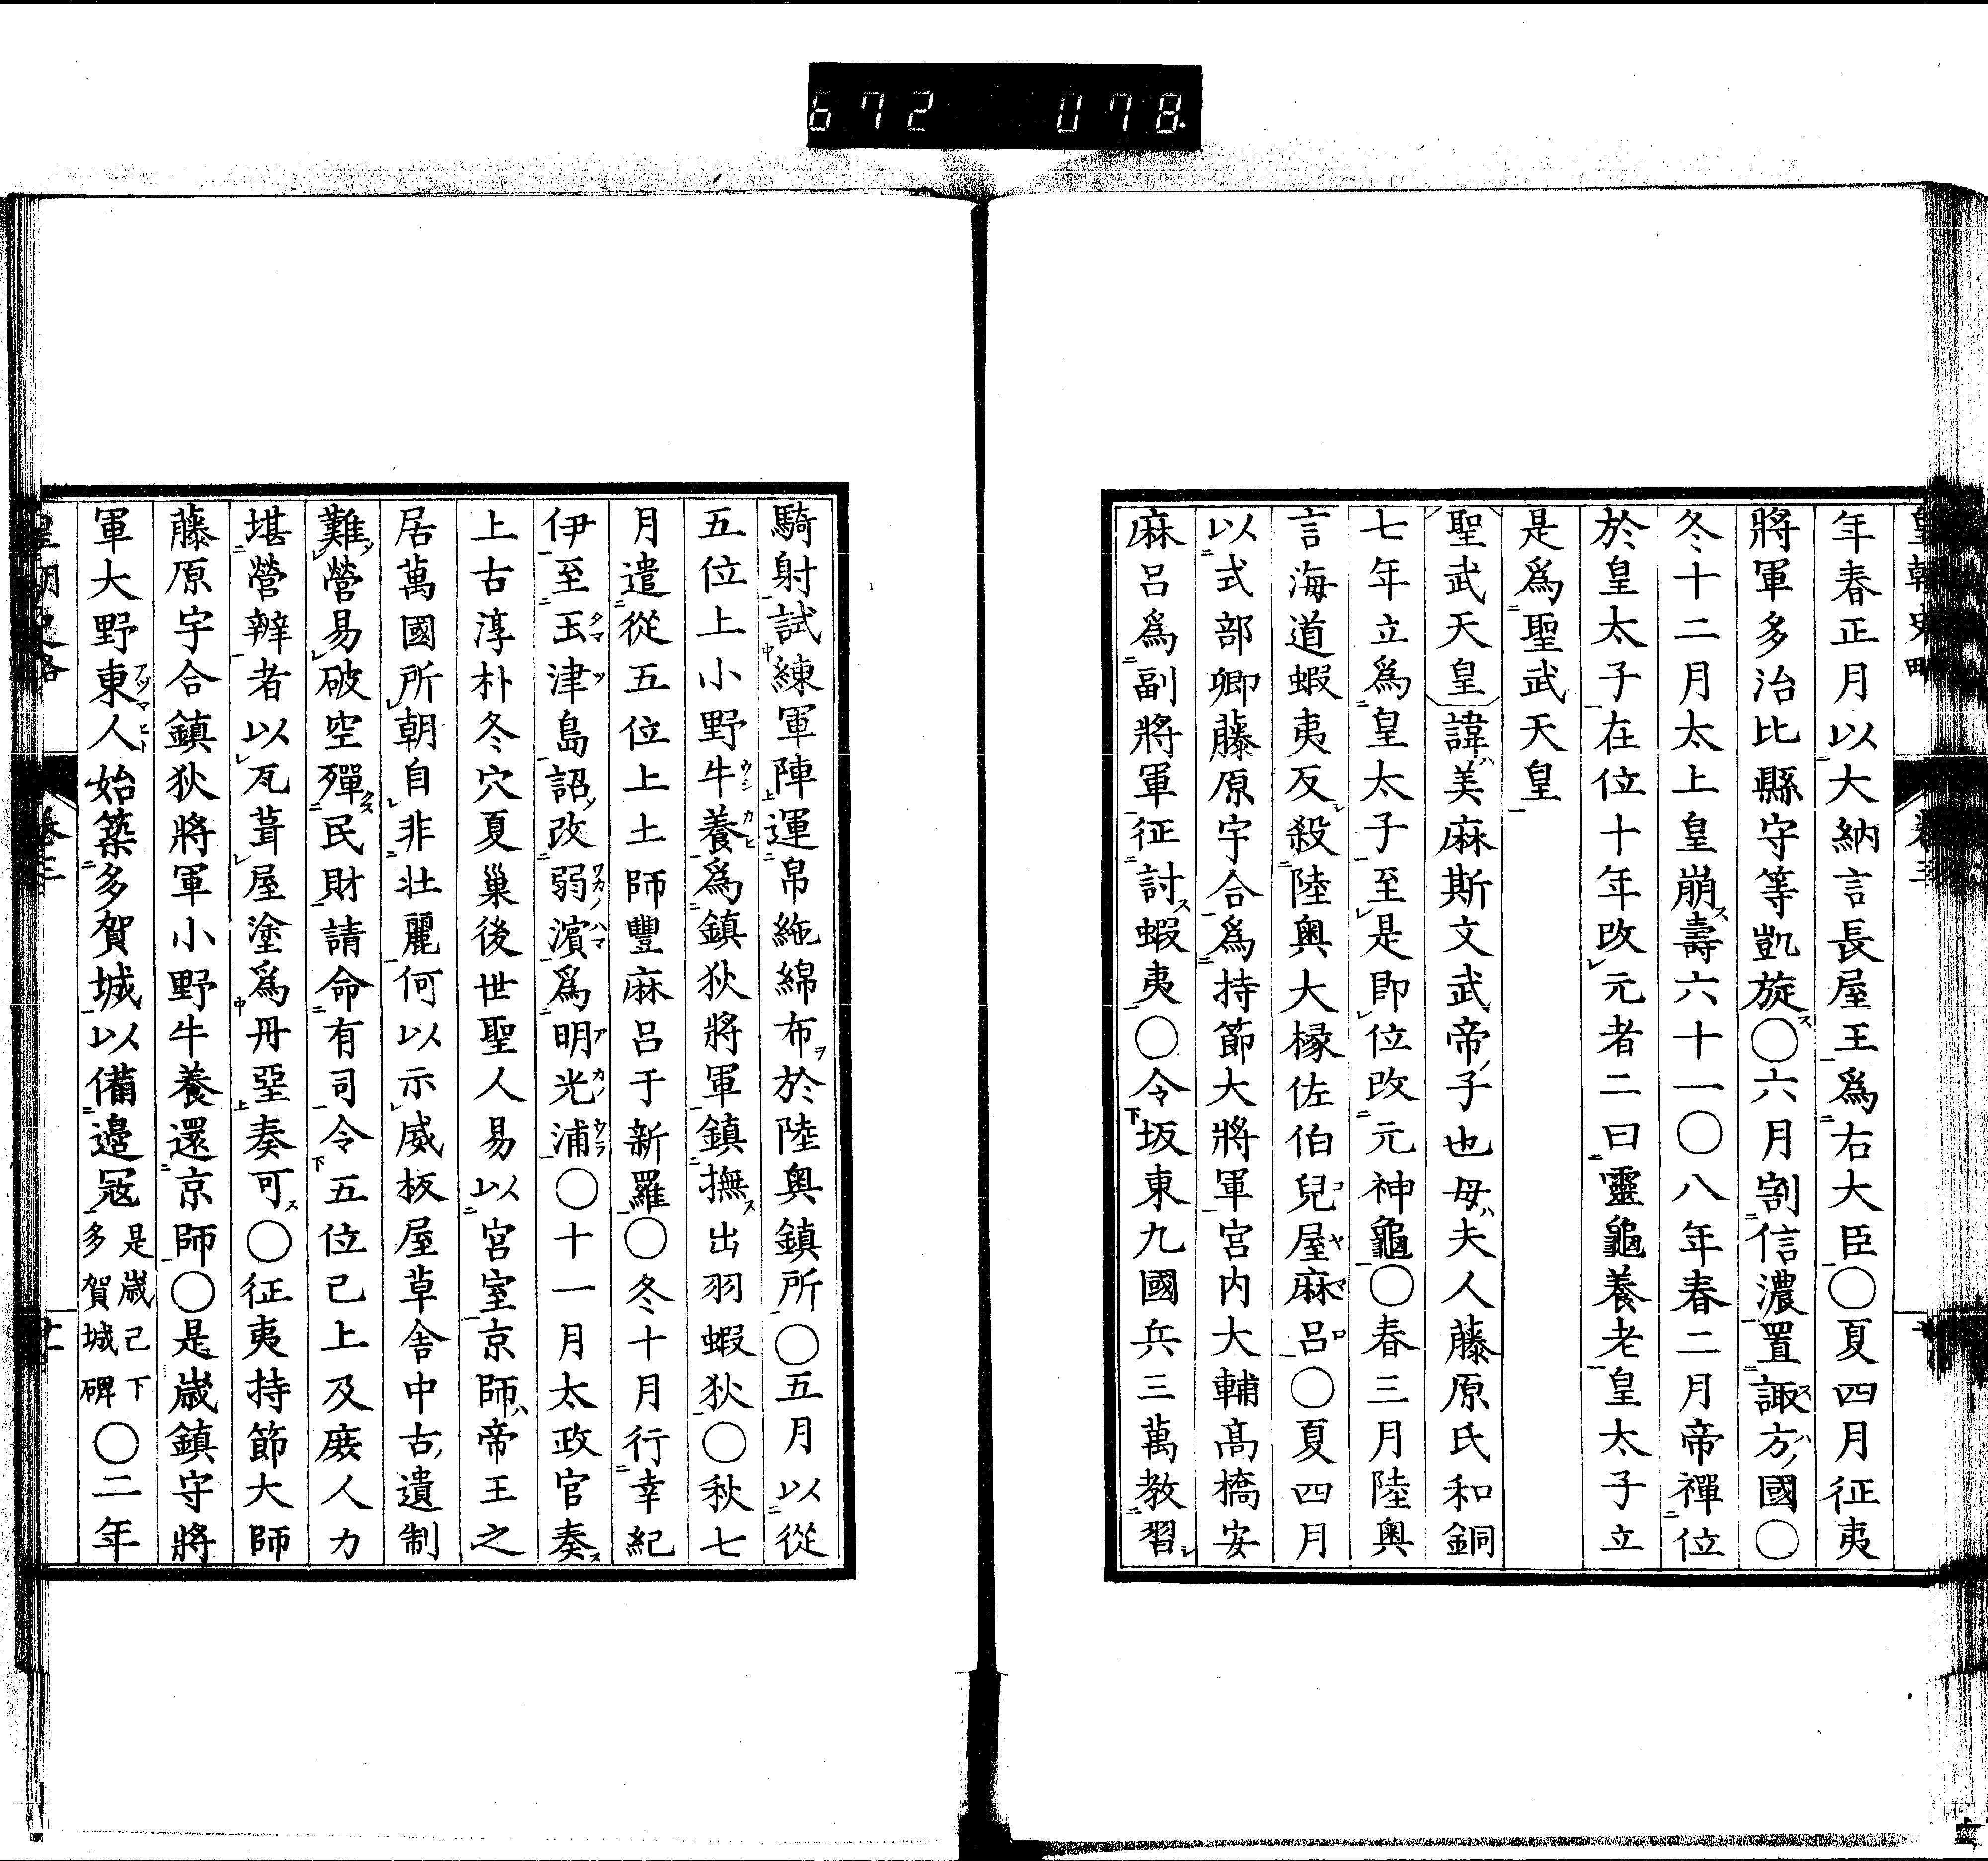 672 078
皇朝史略 卷三
年春正月以大納言長屋王爲右大臣○夏四月征夷
將軍多治比縣守等凱旋ス○六月割信濃置諏方ノ國○
冬十二月太上皇崩ス壽六十一○八年春二月帝禪位
於皇太子在位十年改元者二曰靈龜養老皇太子立
是爲聖武天皇
聖武天皇諱ハ美麻斯文武帝ノ子也母ハ夫人藤原氏和銅
七年立爲皇太子至是即位改元神龜○春三月陸奧
言海道蝦夷反シ殺陸奧大椽佐伯兒屋麻呂○夏四月
以式部卿藤原宇合爲持節大將軍宮内大輔髙橋安
麻呂爲副將軍征討ス蝦夷○令坂東九國兵三萬教習シ
騎射試練軍陣運帛絁綿布ヲ於陸奧鎮所○五月以從
五位上小野牛養爲鎮狄將軍鎮撫ス出羽蝦狄○秋七
月遣從五位上土師豐麻呂于新羅○冬十月行幸紀
伊至玉津島詔ノ改弱濱爲明光浦○十一月太政官奏ス
上古淳朴冬穴夏巢後世聖人易以宮室京師ハ帝王之
居萬國所朝自非壯麗何以示威板屋草舍中古ノ遺制
難營易破空殫民財請命有司令五位已上及庶人力
堪營辦者以瓦葺屋塗爲丹堊奏可ス○征夷持節大師
藤原宇合鎮狄將軍小野牛養還京師○是歲鎮守將
軍大野東人始築多賀城以備邊寇是歲已下多賀城碑○二年
皇朝史略 卷三 十一